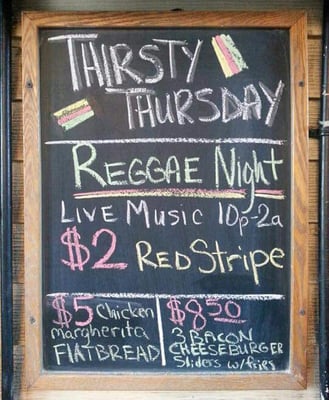 THIRSTY
THURSDAY
REGGAE Night
LIVE Music 10p-2a
$2 RED Stripe
$5 Chicken
margherita
FlATBREAD
$8.50
3 BACON
CHEESEBURGER
Sliders w/fries